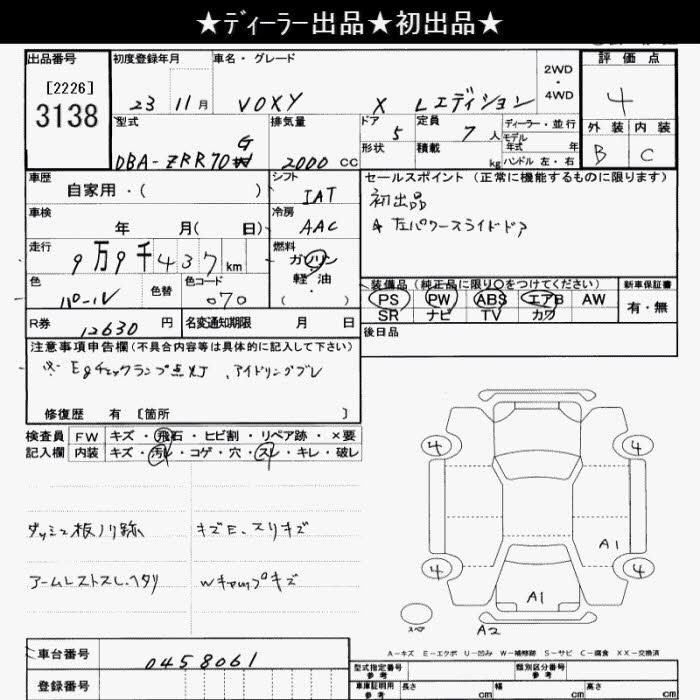 ★ディーラー出品★初出品★
出品番号 初度登録年月 車名・グレード 2WD・4WD 評価点
[2226]
3138
23 11月 VOXY X Lエディション 4
型式 排気量 ドア 定員 ディーラー・並行 外装 内装
DBA-ZRR70G 2000 CC 5 7人 モデル年式 年 B C
形状 積載 kg ハンドル 左・右
車歴 シフト セールスポイント (正常に機能するものに限ります)
自家用・( ) IAT 初出品
車検 冷房 左パワースライドドア
年 月( 日) AAC
走行 燃料
9万9千437km ガソリン
軽・油
( )
色 色替 色コード 装備品(純正品に限り〇をつけてください) 新車保証書
パール 070 PS PW ABS エアB AW 有・無
SR ナビ TV カワ
R券 12630円 名変通知期限 月 日 後日品
注意事項申告欄(不具合内容等は具体的に記入して下さい)
※ Egチェックランプ点灯、アイドリングブレ
修復歴 有 [箇所 ]
検査員 FW キズ・飛石・ヒビ割・リペア跡・×要
記入欄 内装 キズ・汚れ・コゲ・穴・スレ・キレ・破レ
4 4
ダッシュ板ノリ跡 キズE、スリキズ
A1
アームレストスレ、ヘタリ Wキャップキズ
4 4
A1
スペア A2
A-キズ E-エクボ U-凹み W-補修跡 S-サビ C-腐食 XX-交換済
車台番号 0458061
型式指定番号 参考 類別区分番号 参考
登録番号 車庫証明用 参考 長さ cm 幅 cm 高さ cm